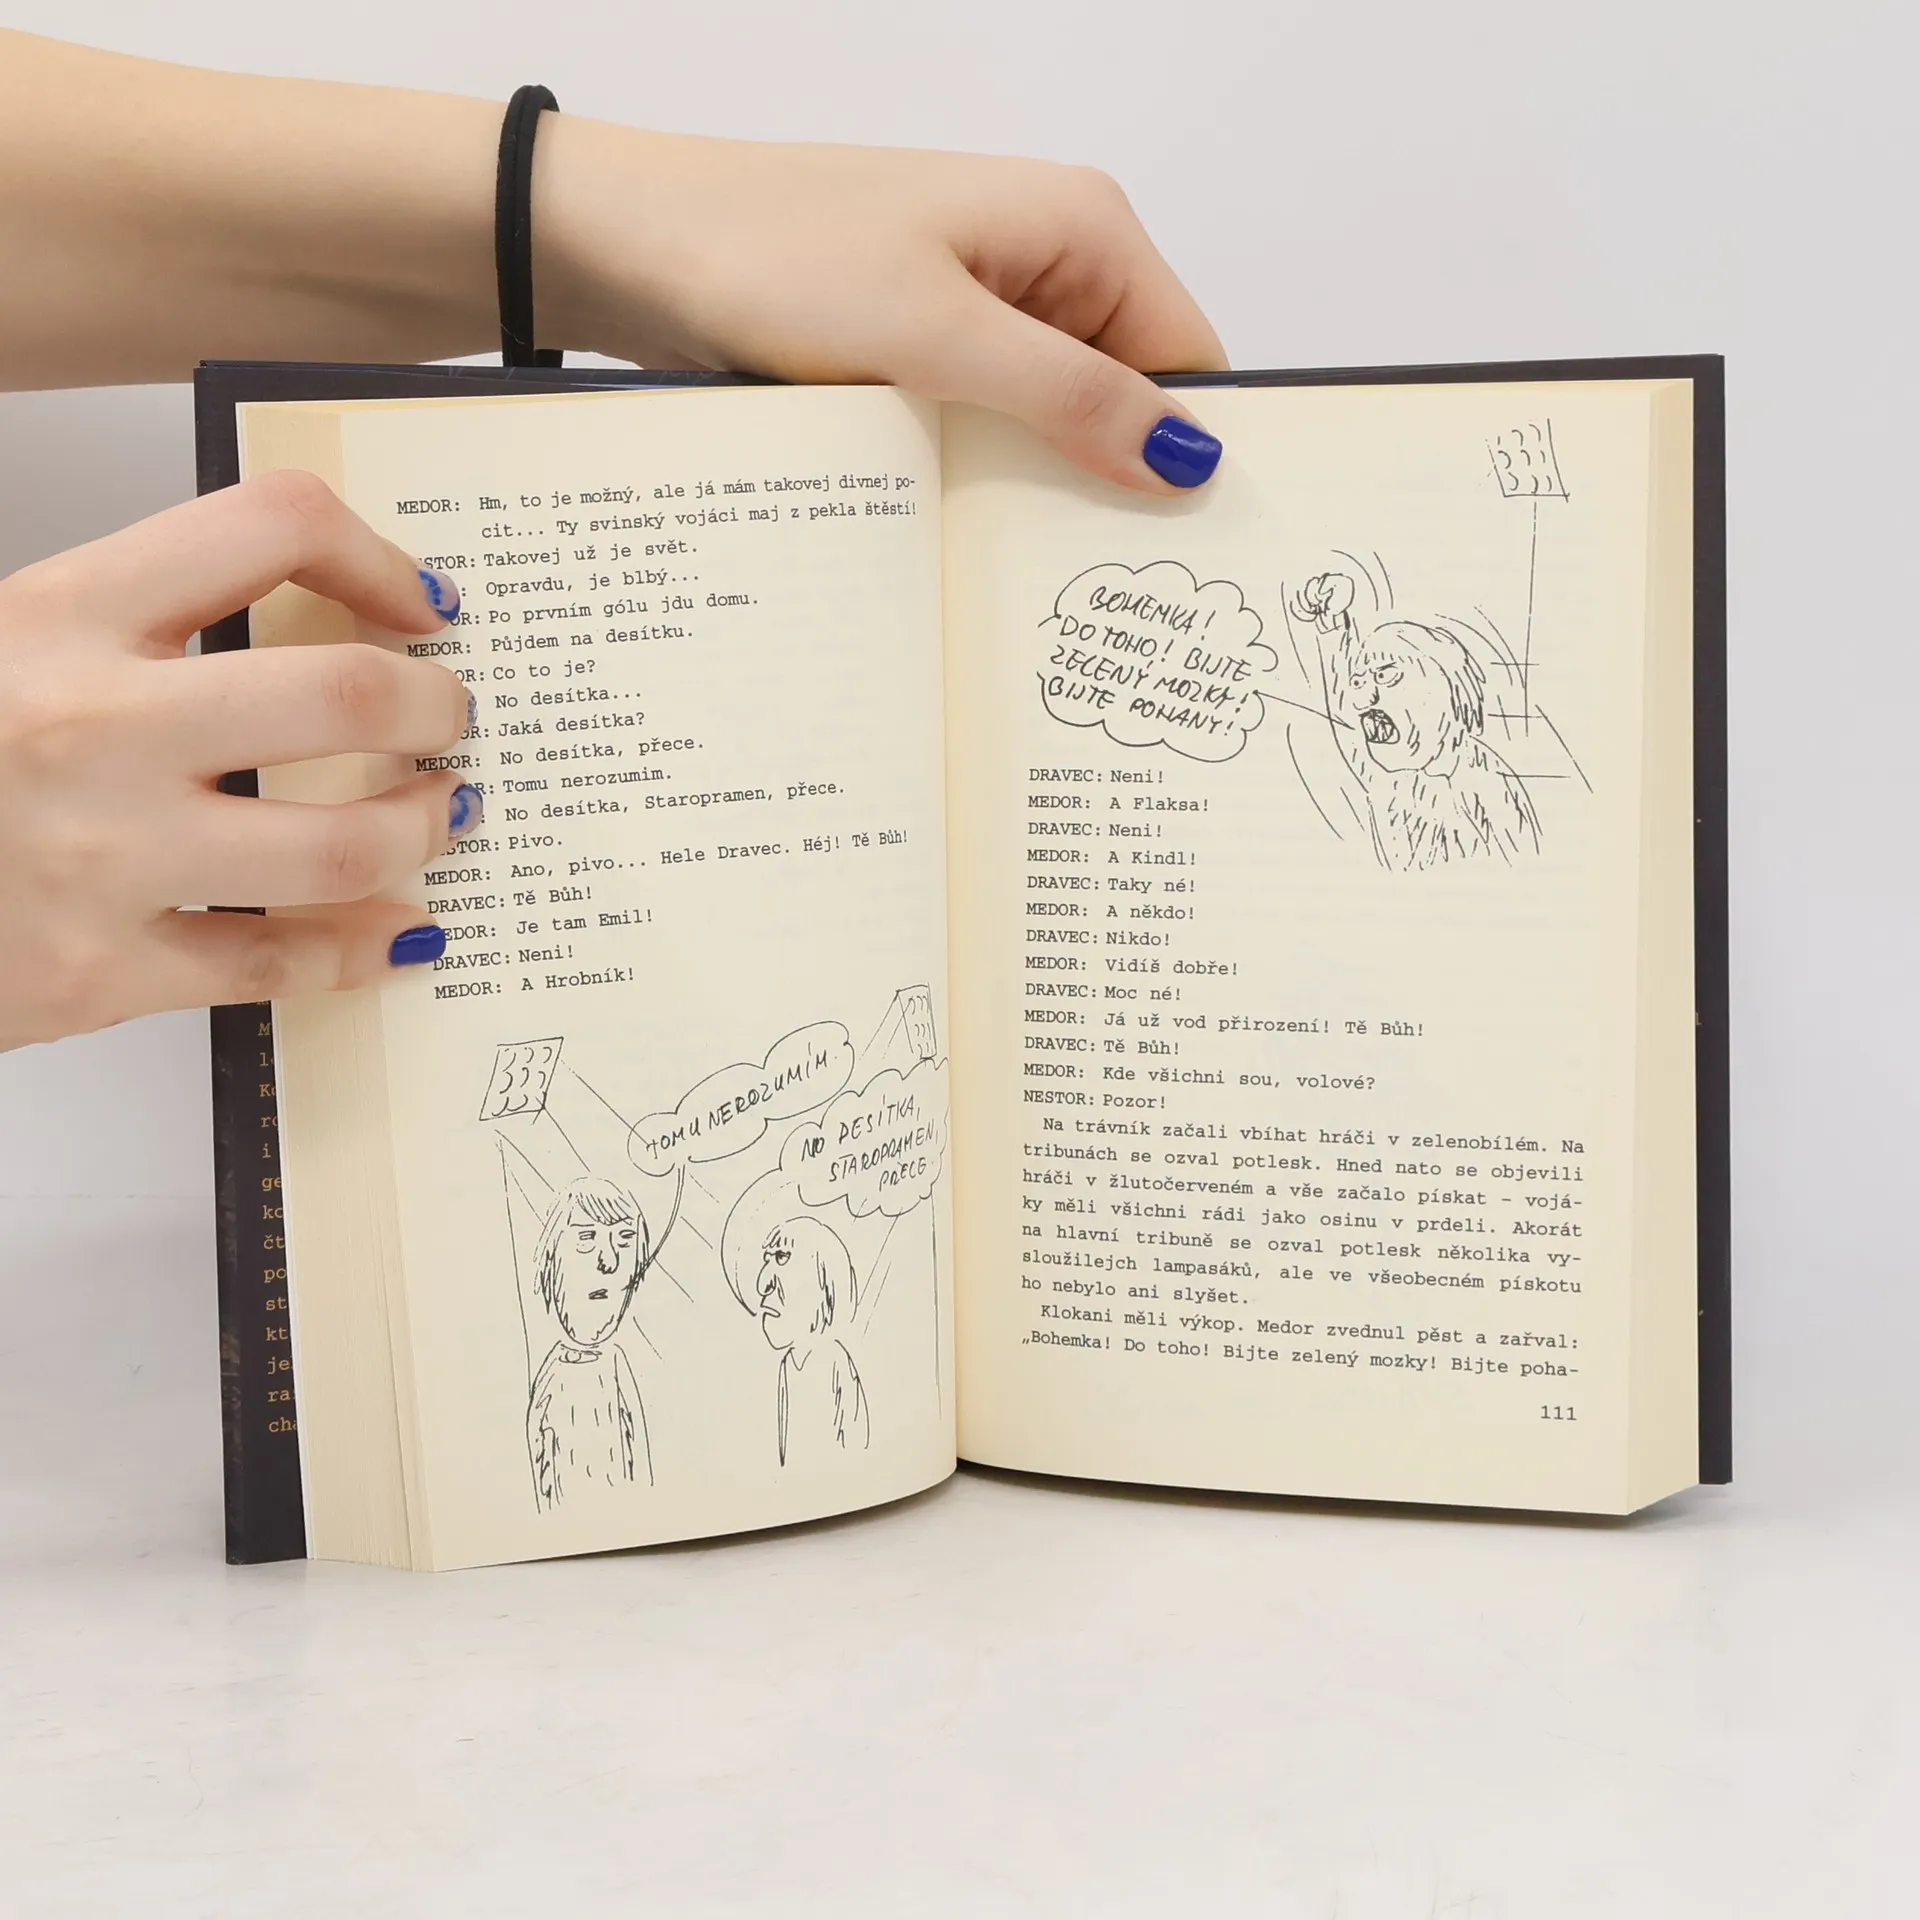 MEDOR: Hm, to je možný, ale já mám takovej divnej po-
cit... Ty svinský vojáci maj z pekla štěstí!
STOR: Takovej už je svět.
: Opravdu, je blbý...
OR: Po prvním gólu jdu domu.
MEDOR: Půjdem na desítku.
OR: Co to je?
No desítka...
OR: Jaká desítka?
MEDOR: No desítka, přece.
R: Tomu nerozumim.
: No desítka, Staropramen, přece.
STOR: Pivo.
MEDOR: Ano, pivo... Hele Dravec. Héj! Tě Bůh!
DRAVEC: Tě Bůh!
EDOR: Je tam Emil!
DRAVEC: Neni!
MEDOR: A Hrobník!
TOMU NEROZUMÍM.
NO DESÍTKA,
STAROPRAMEN,
PŘECE.
M
l
K
ro
i
ge
ko
čt
po
st
kt
je
ra
cha
BOHEMKA!
DO TOHO! BIJTE
ZELENÝ MOZKY!
BIJTE POHANY!
DRAVEC: Neni!
MEDOR: A Flaksa!
DRAVEC: Neni!
MEDOR: A Kindl!
DRAVEC: Taky né!
MEDOR: A někdo!
DRAVEC: Nikdo!
MEDOR: Vidíš dobře!
DRAVEC: Moc né!
MEDOR: Já už vod přirození! Tě Bůh!
DRAVEC: Tě Bůh!
MEDOR: Kde všichni sou, volové?
NESTOR: Pozor!
Na trávník začali vbíhat hráči v zelenobílém. Na
tribunách se ozval potlesk. Hned nato se objevili
hráči v žlutočerveném a vše začalo pískat – vojá-
ky měli všichni rádi jako osinu v prdeli. Akorát
na hlavní tribuně se ozval potlesk několika vy-
sloužilejch lampasáků, ale ve všeobecném pískotu
ho nebylo ani slyšet.
Klokani měli výkop. Medor zvednul pěst a zařval:
„Bohemka! Do toho! Bijte zelený mozky! Bijte poha-
111